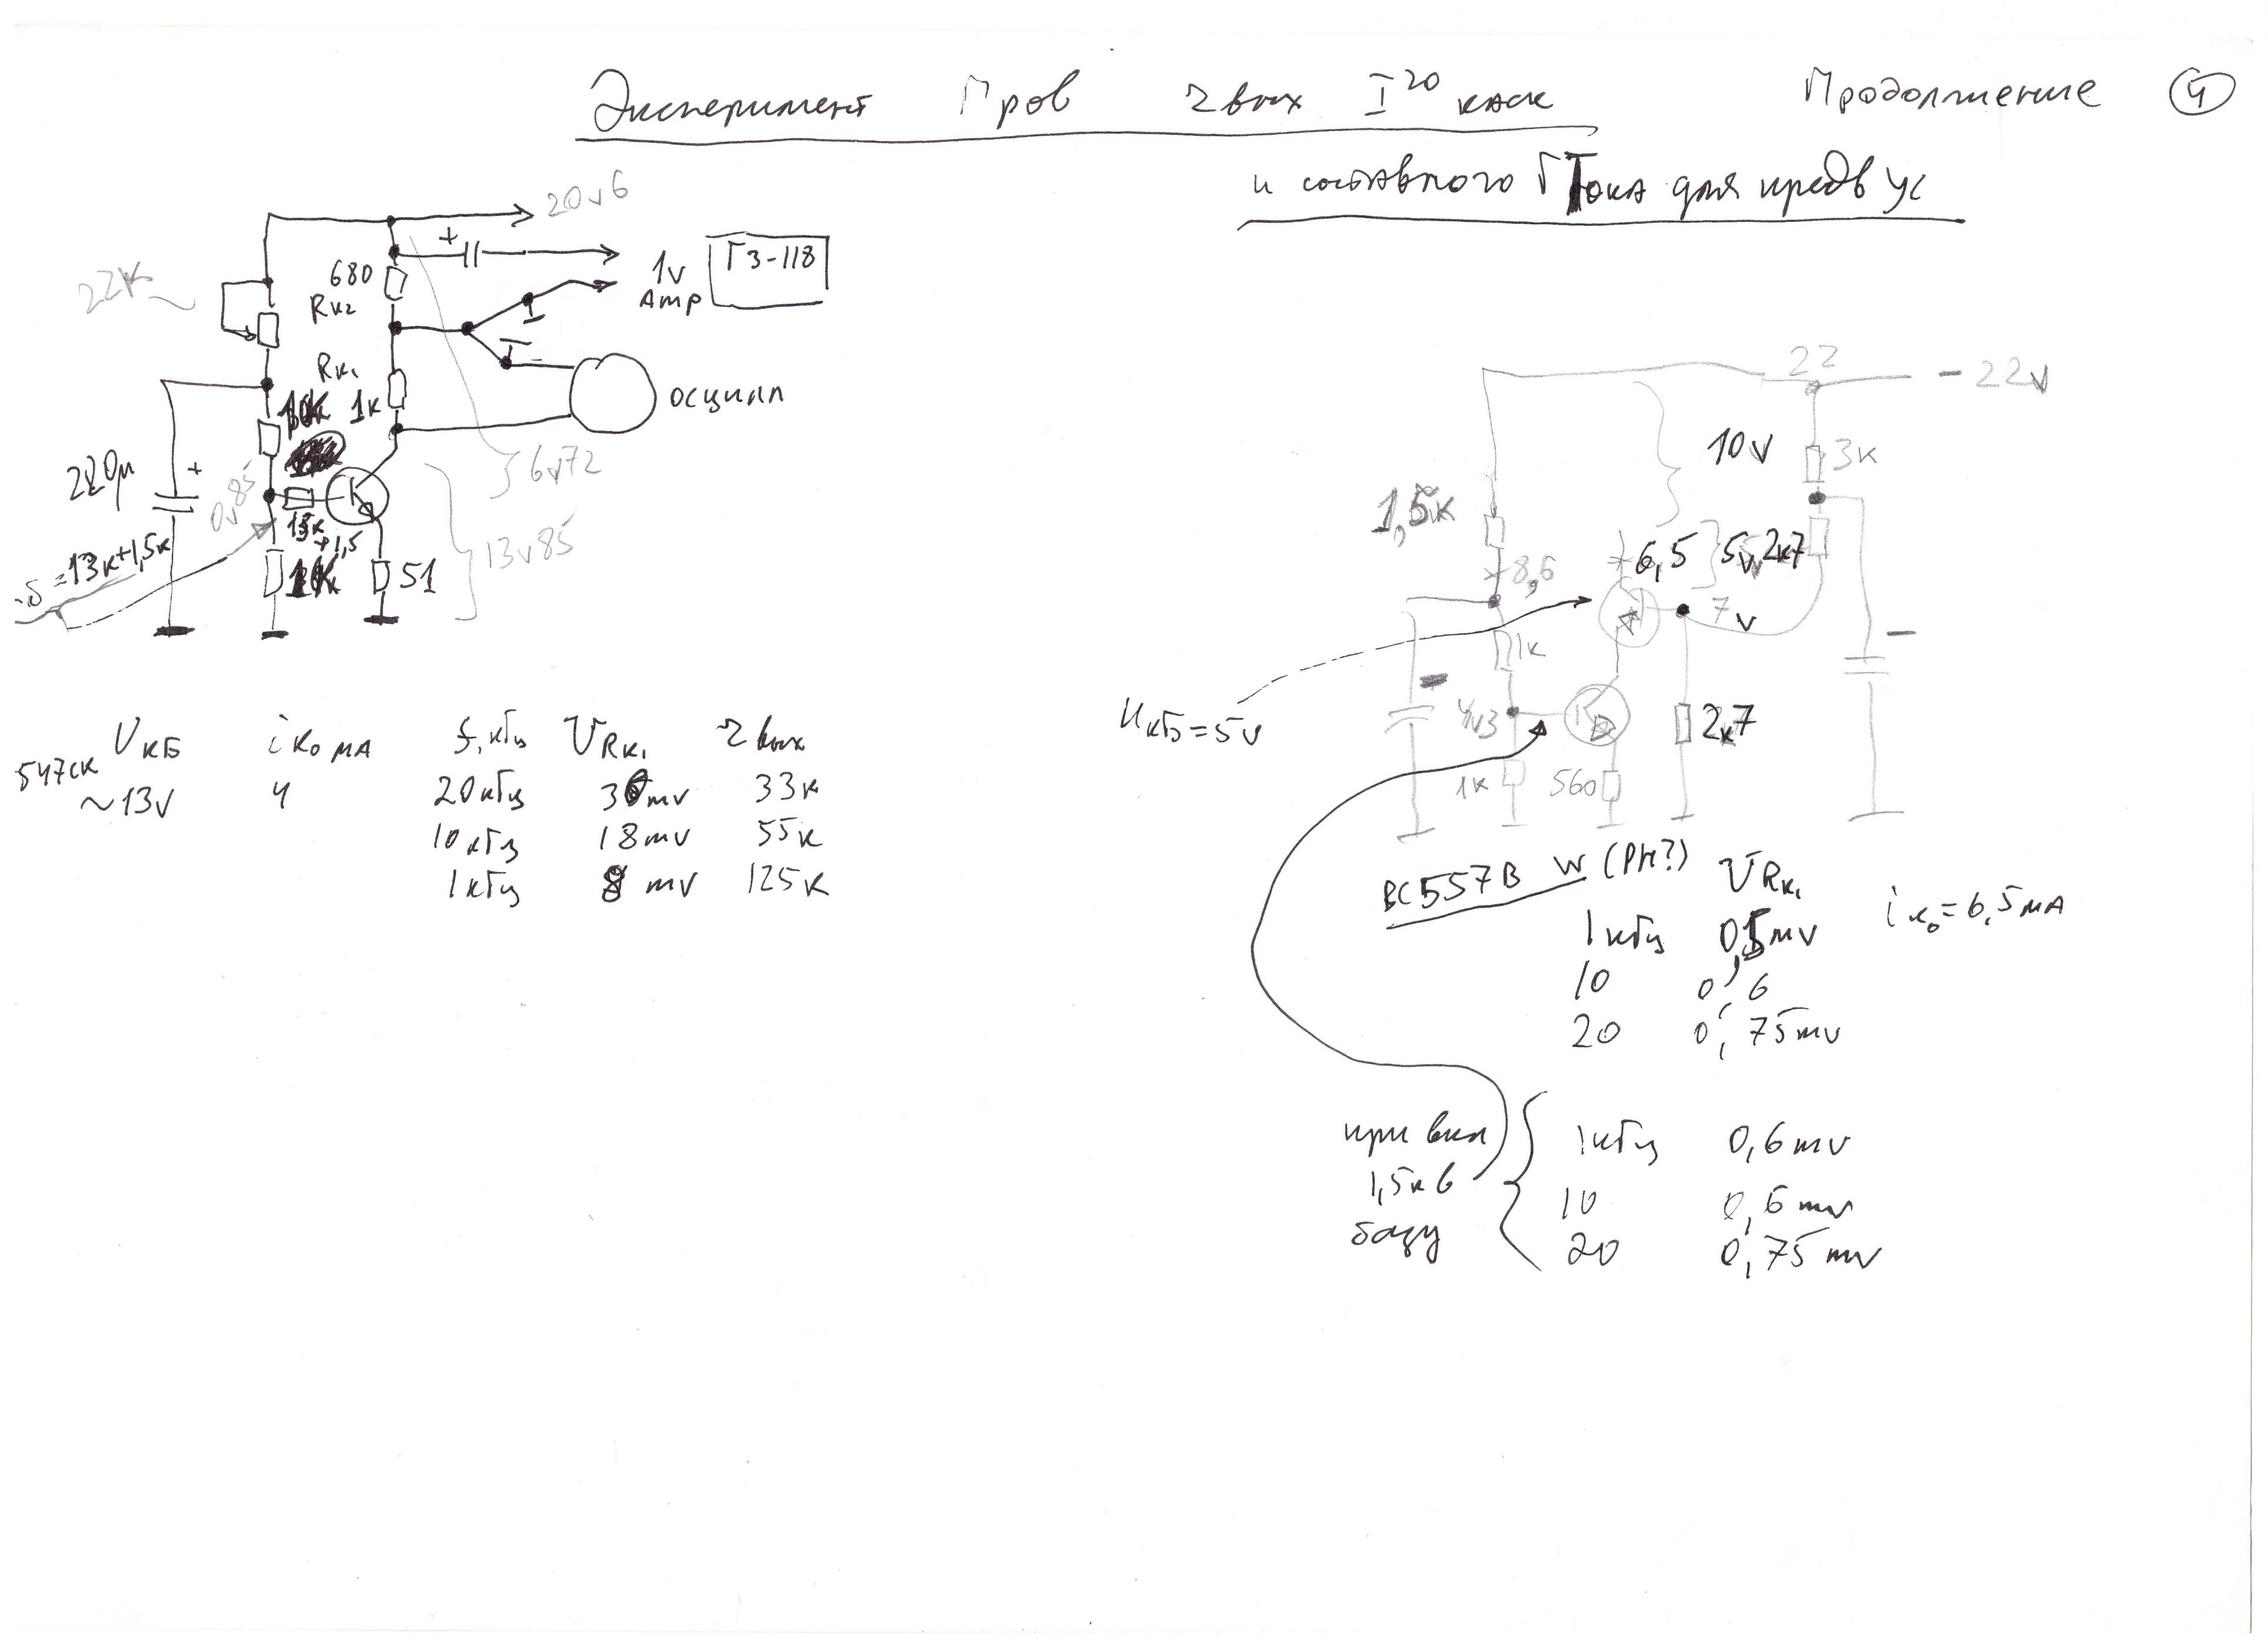 Эксперимент Пров rвых I го каск
Продолжение 4
и составного ГТока для предв ус
20v6
+
1v Amp
Г3-118
680
Rк2
22К
Rк1
1к
10К
осцилл
220µ
+
0v85
6v72
13v85
13к+1,5
=13к+1,5к
1К
51
547ск
Uкб iко мА f, кГц URк1 rвых
~13v 4 20кГц 30mv 33к
10кГц 18mv 55к
1кГц 8 mv 125к
22
- 22v
10v
3к
1,5к
8,6
6,5
5v
2к7
7v
1к
Uкб=5v
4v3
2к7
1к
560
BC557B W (PH?)
URк1
iко=6,5мА
1кГц 0,5mv
10 0,6
20 0,75mv
при вкл
1,5к в
базу
1кГц 0,6mv
10 0,6mv
20 0,75mv